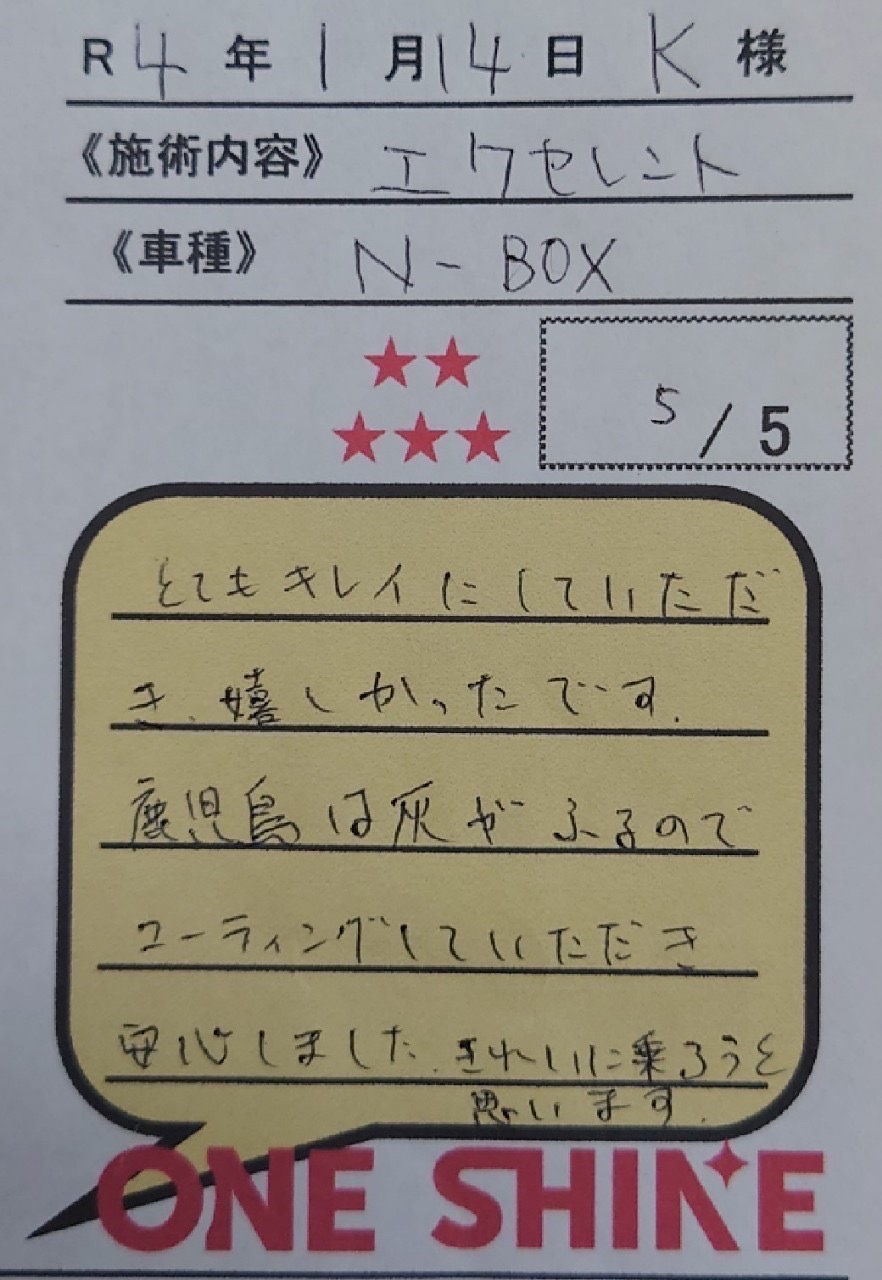 R4年1月14日 K様
《施術内容》 エクセレント
《車種》 N-BOX
★★
★★★
5/5
とてもキレイにしていただ
き、嬉しかったです。
鹿児島は灰がふるので
コーティングしていただき
安心しました。きれいに乗ろうと
思います。
ONE SHINE